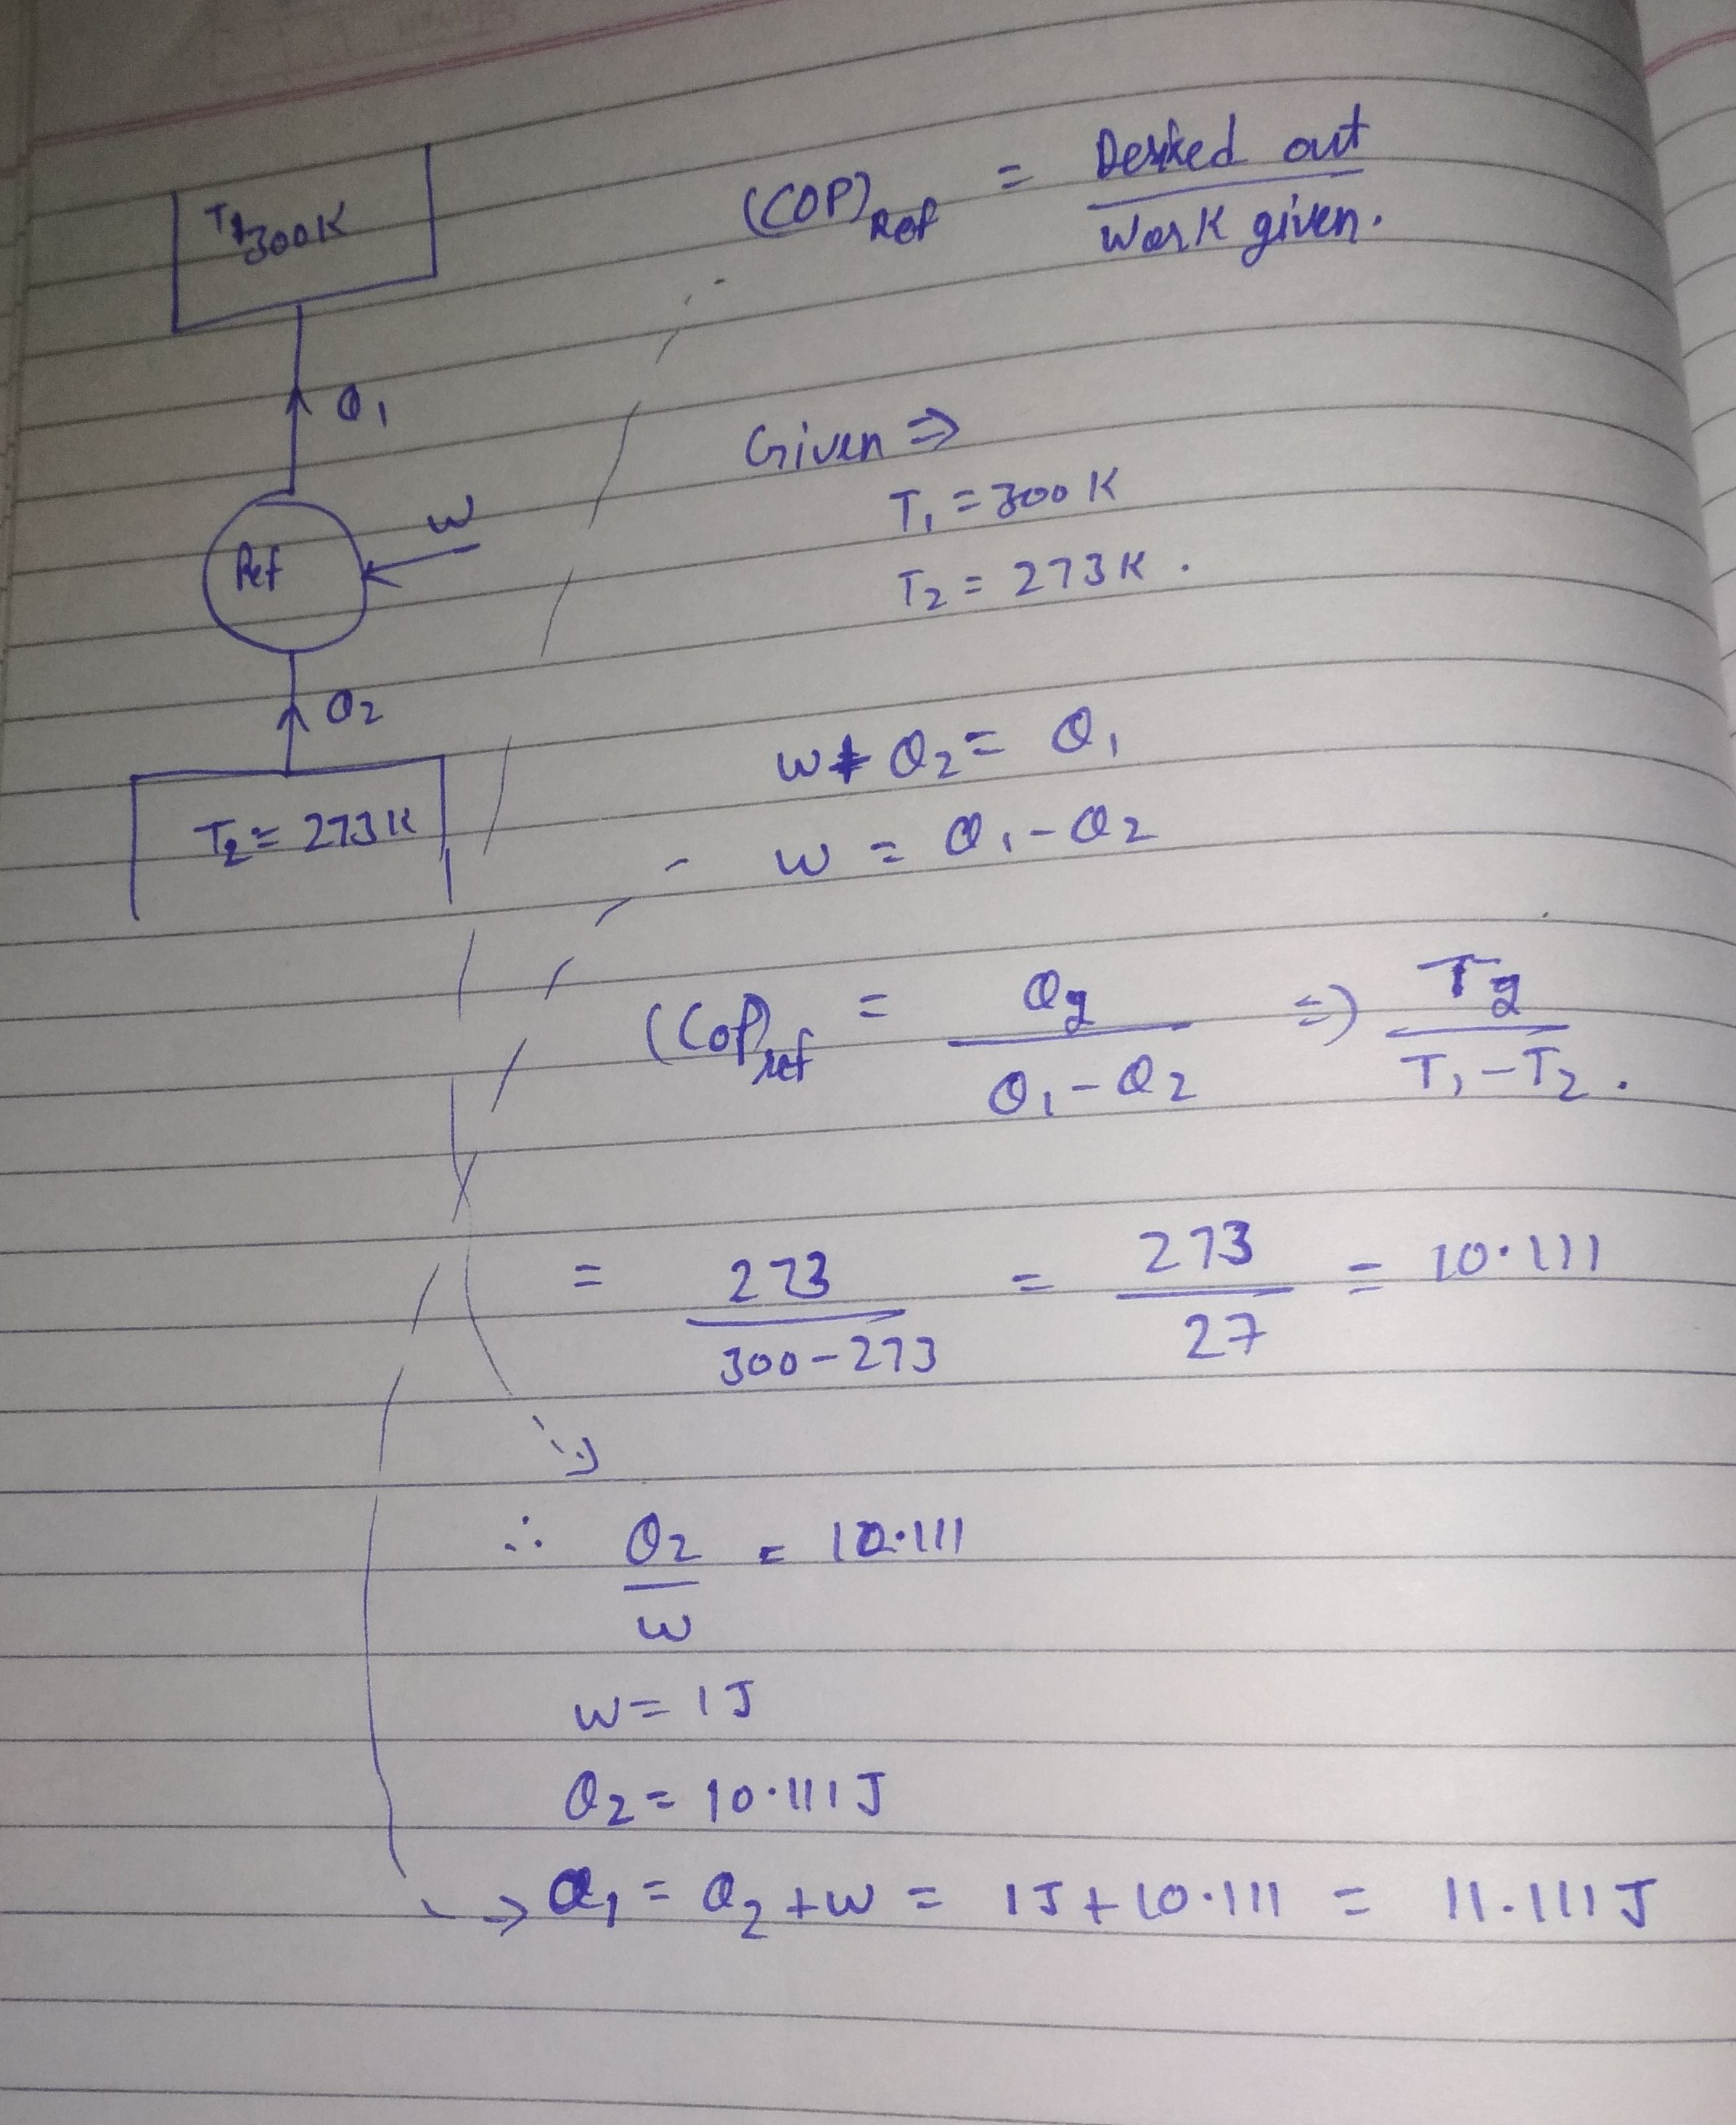 T1 300K
Q1
W
Ref
Q2
T2 = 273K
(COP)Ref = Desired out / Work given.
Given ⇒
T1 = 300 K
T2 = 273 K.
W + Q2 = Q1
W = Q1 - Q2
(COP)ref = Q2 / Q1 - Q2 ⇒ T2 / T1 - T2.
= 273 / 300 - 273 = 273 / 27 = 10.111
∴ Q2 / W = 10.111
W = 1J
Q2 = 10.111J
→ Q1 = Q2 + W = 1J + 10.111 = 11.111J